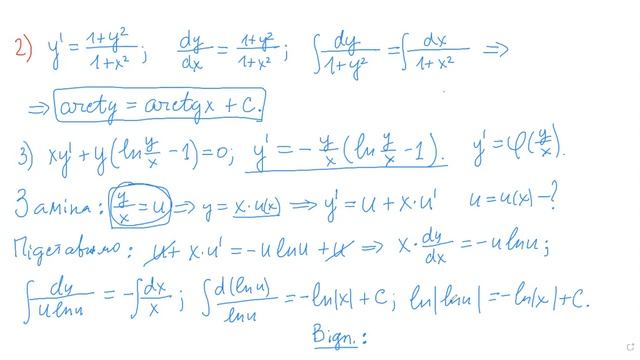 2) y' = (1+y²)/(1+x²); dy/dx = (1+y²)/(1+x²); ∫ dy/(1+y²) = ∫ dx/(1+x²) ⇒
⇒ arctgy = arctgx + C.
3) xy' + y(ln y/x − 1) = 0; y' = − y/x (ln y/x − 1). y' = φ(y/x).
Заміна: y/x = u ⇒ y = x·u(x) ⇒ y' = u + x·u' u = u(x) − ?
Підставимо: u + x·u' = −u ln u + u ⇒ x· du/dx = −u ln u;
∫ du/(u ln u) = −∫ dx/x; ∫ d(ln u)/(ln u) = −ln|x| + C; ln|ln u| = −ln|x| + C.
Відп.: